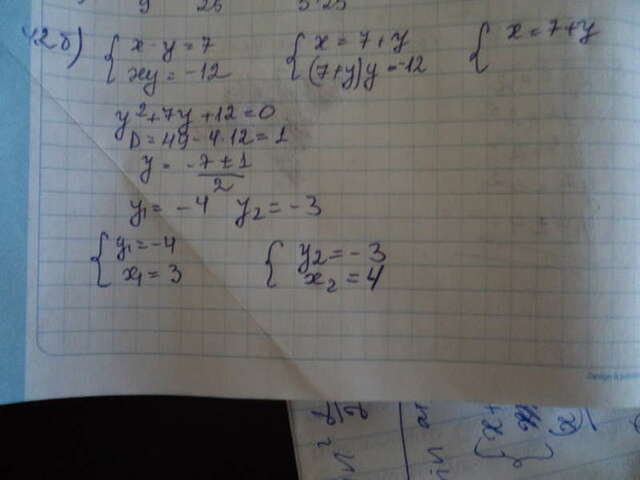 42б) { x - y = 7
xy = -12
{ x = 7 + y
(7+y)y = -12
{ x = 7+y
y²+7y+12=0
D = 49 - 4·12 = 1
y = -7±1
2
y₁ = -4 y₂ = -3
{ y₁ = -4
x₁ = 3
{ y₂ = -3
x₂ = 4